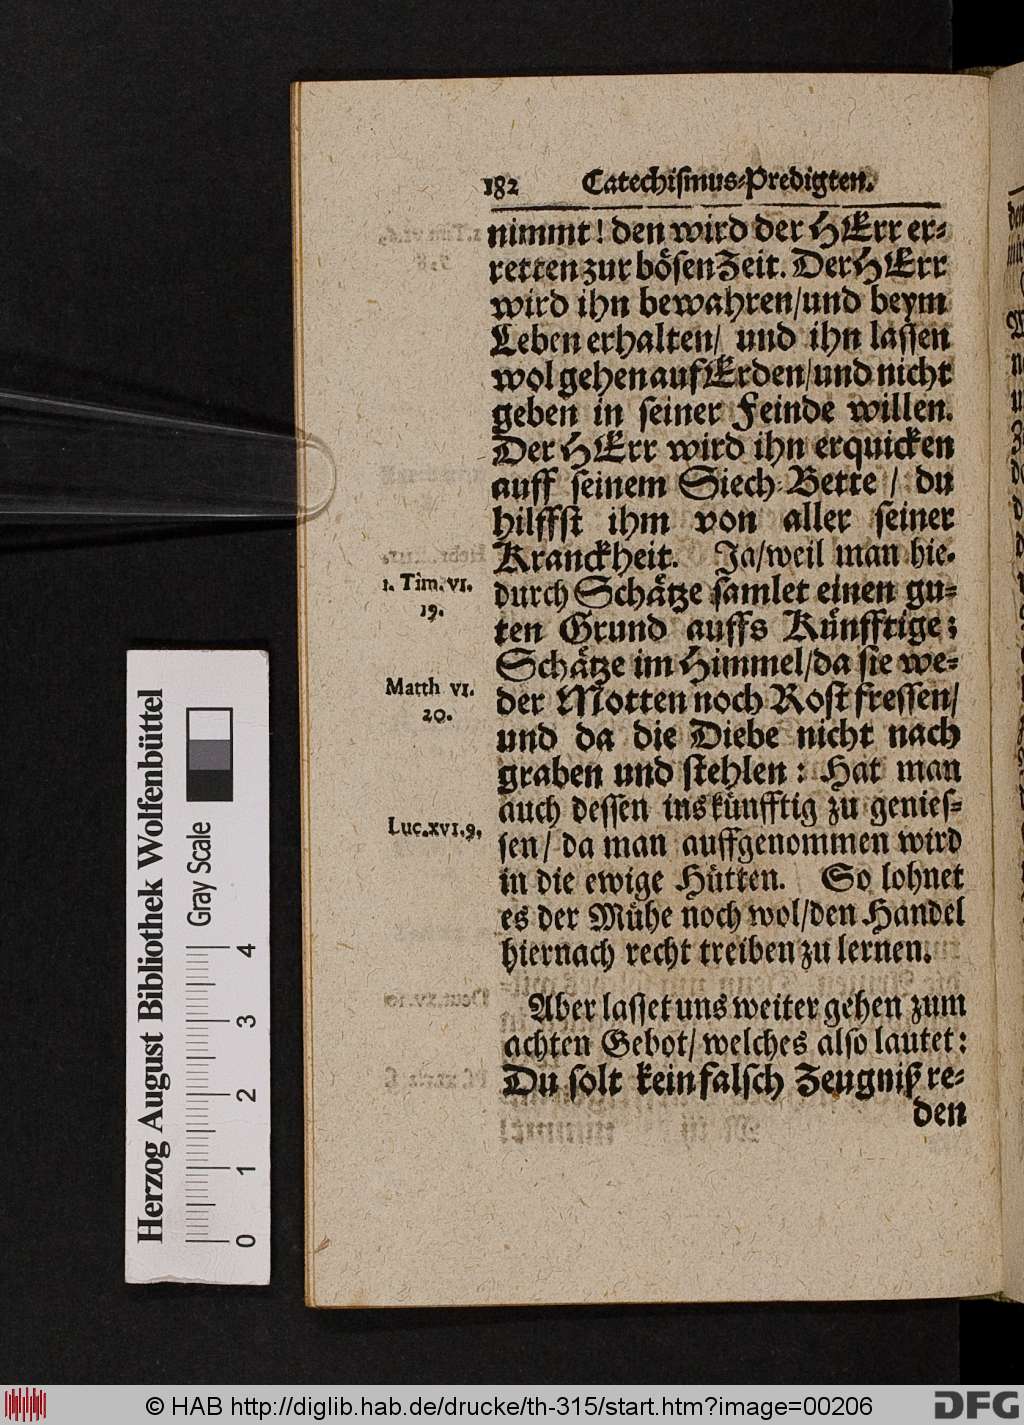 182 Catechismus-Predigten.
nimmt! den wird der HErr er-
retten zur bösen Zeit. Der HErr
wird ihn bewahren/und beym
Leben erhalten/ und ihn lassen
wol gehen auf Erden/und nicht
geben in seiner Feinde willen.
Der HErr wird ihn erquicken
auff seinem Siech-Bette / du
hilffst ihm von aller seiner
Kranckheit. Ja/weil man hie-
1. Tim. VI.
19.
durch Schätze samlet einen gu-
ten Grund auffs Künfftige;
Schätze im Himmel/da sie we-
Matth VI.
20.
der Motten noch Rost fressen/
und da die Diebe nicht nach
graben und stehlen: Hat man
auch dessen ins künfftig zu genies-
Luc. XVI. 9.
sen/ da man auffgenommen wird
in die ewige Hütten. So lohnet
es der Mühe noch wol/den Handel
hiernach recht treiben zu lernen.
Aber lasset uns weiter gehen zum
achten Gebot/ welches also lautet:
Du solt kein falsch Zeugniß re-
den
Herzog August Bibliothek Wolfenbüttel
Gray Scale
0 1 2 3 4
© HAB http://diglib.hab.de/drucke/th-315/start.htm?image=00206
DFG